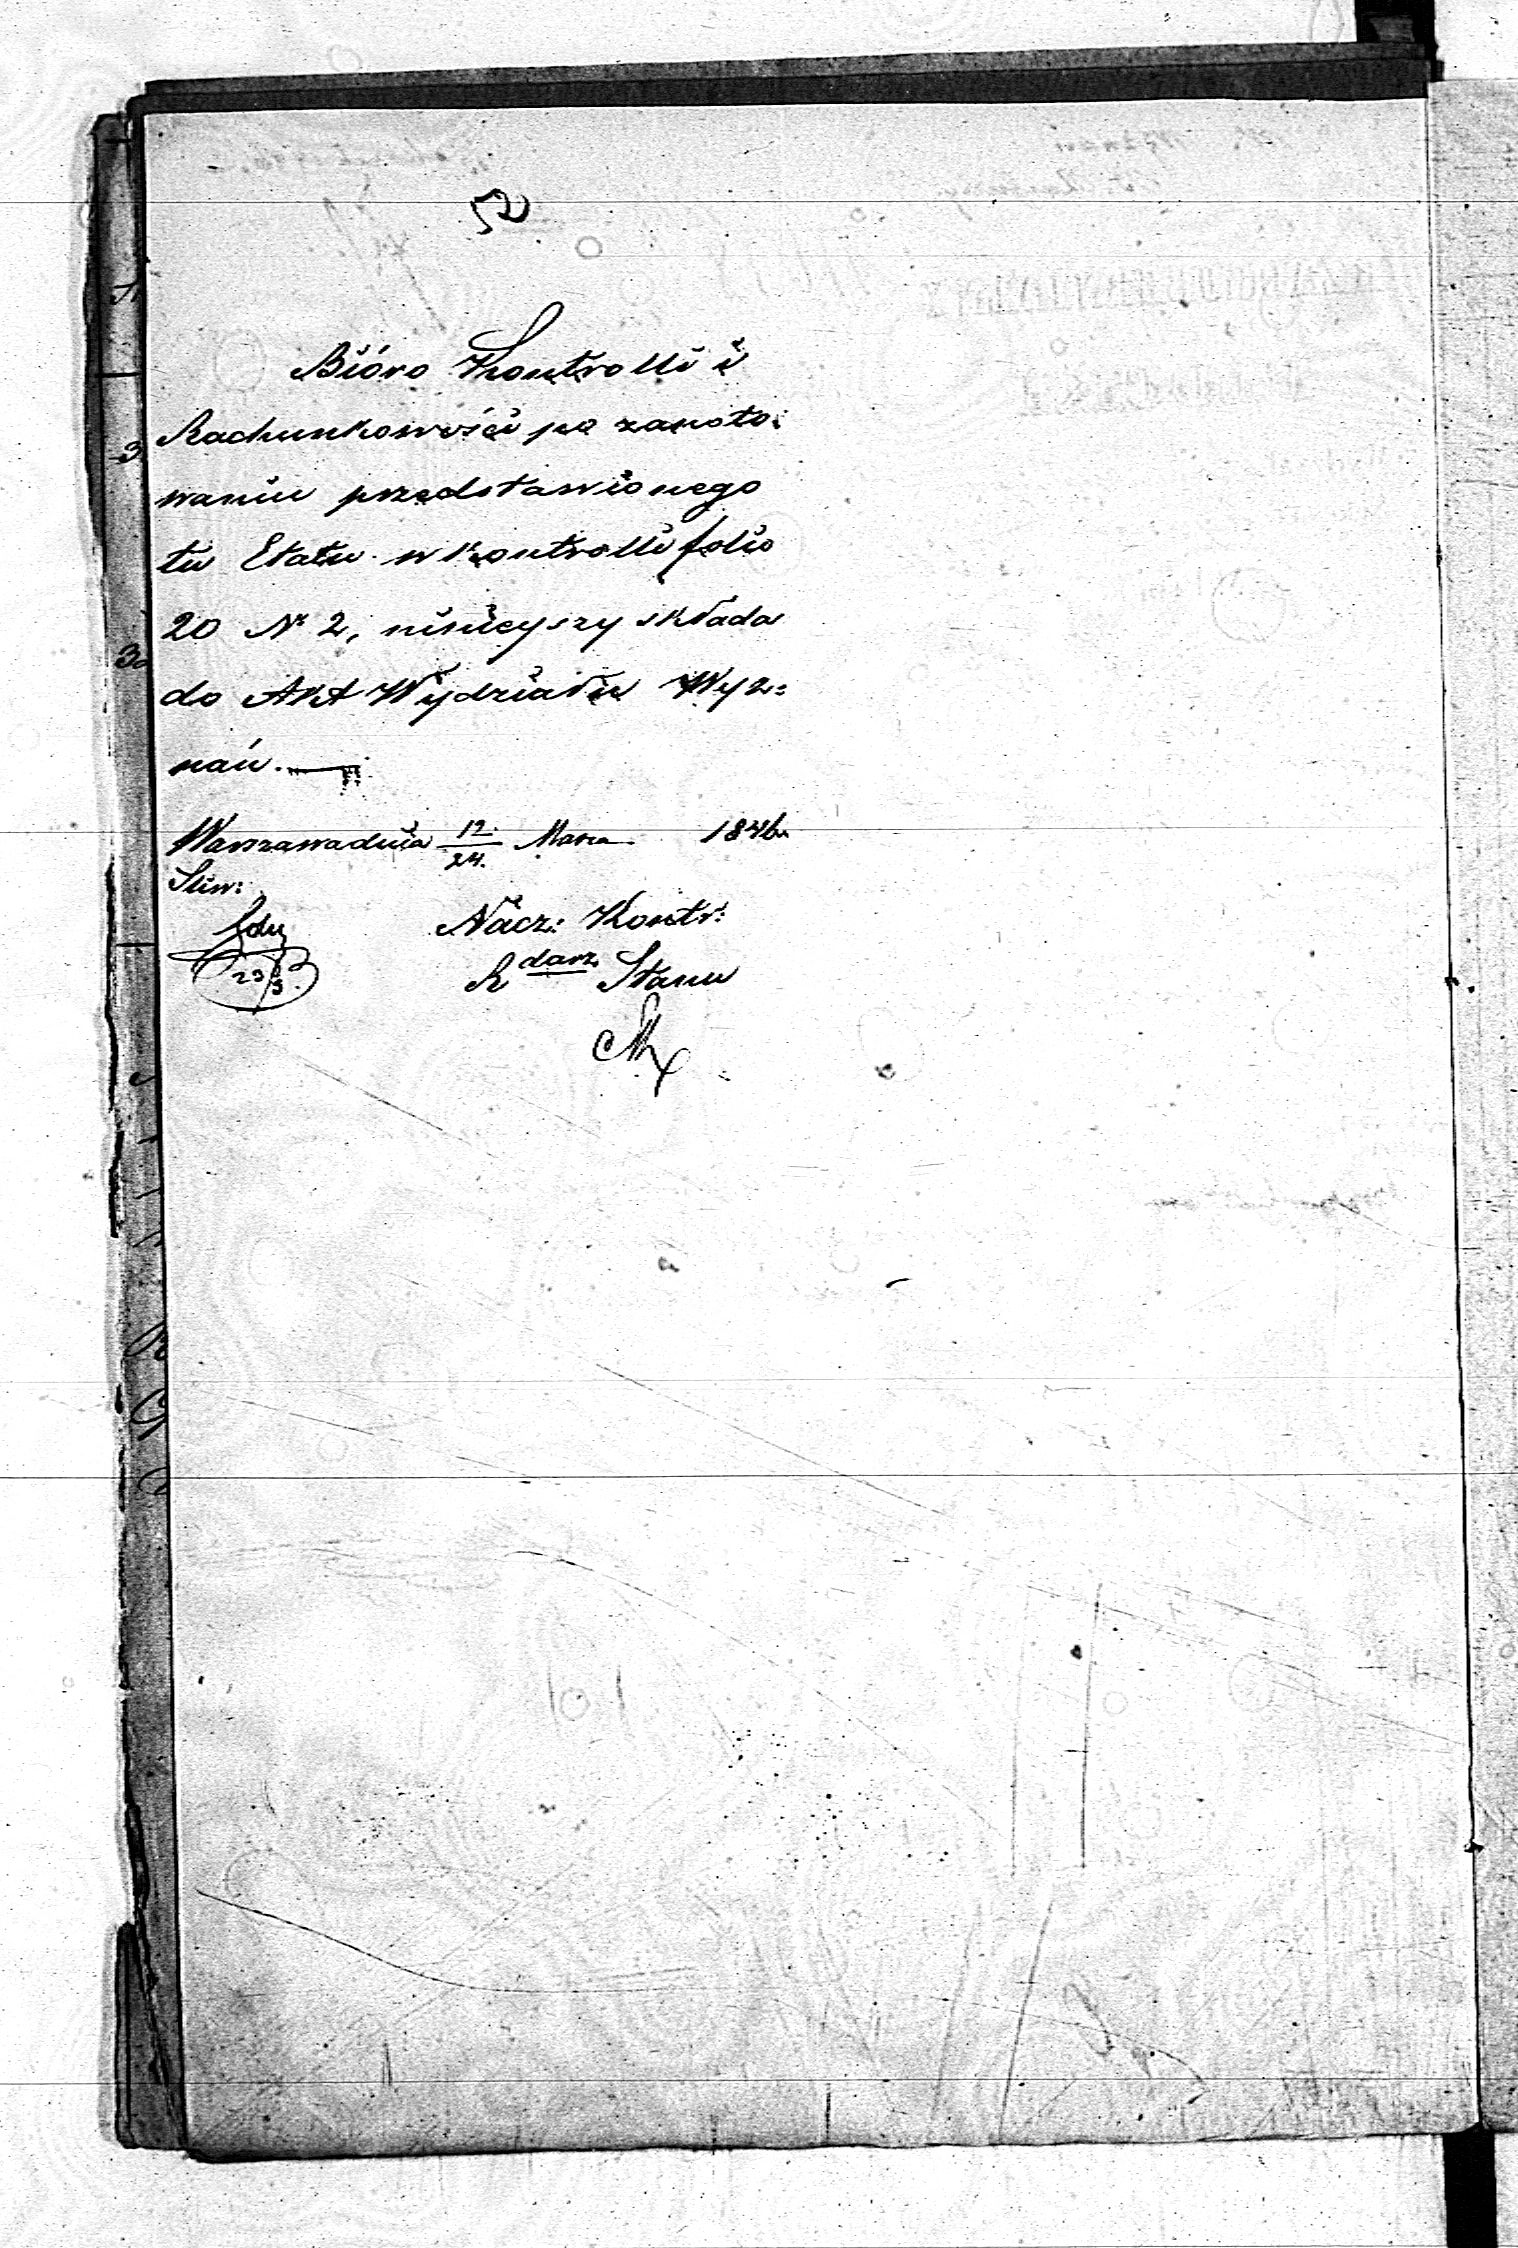 Bióro Kontrolli i
Rachunkowości po zanoto:
waniu przedstawionego
tu Etatu w kontrolli folio
20 Nr 2, niniejszy składa
do Akt Wydziału Wyz:
nań.
Warszawa dnia 12/24. Marca 1846
Nacz: Kontr:
R darz Stanu